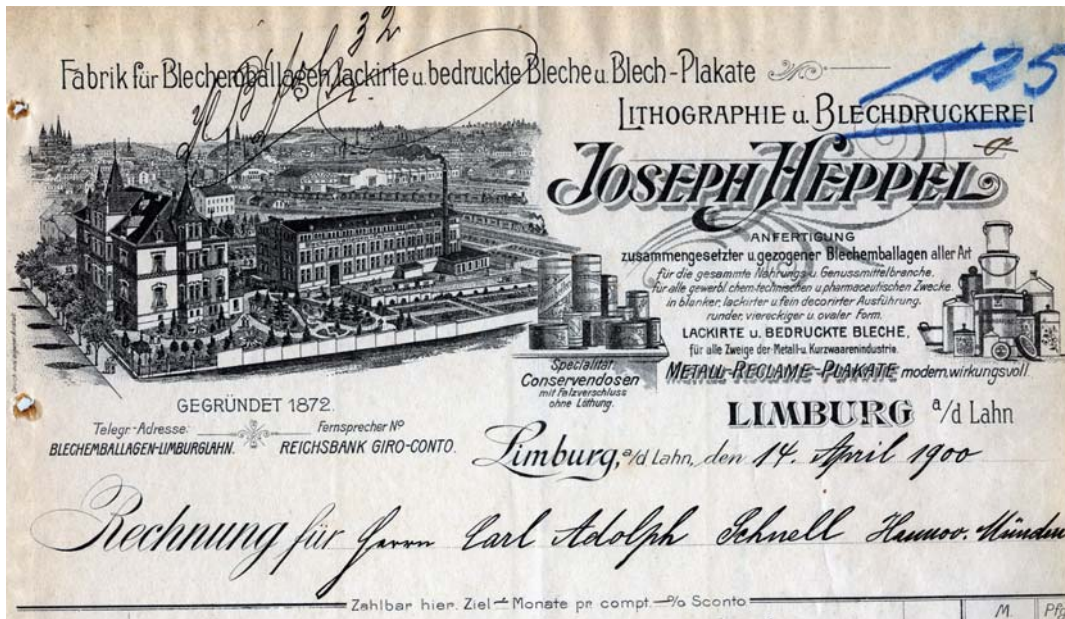 32
Fabrik für Blechemballagen, lackirte u. bedruckte Bleche u. Blech-Plakate
125
LITHOGRAPHIE u. BLECHDRUCKEREI
JOSEPH HEPPEL
ANFERTIGUNG
zusammengesetzter u. gezogener Blechemballagen aller Art
für die gesammte Nahrungs- u. Genussmittelbranche,
für alle gewerbl. chem. technischen u. pharmaceutischen Zwecke
in blanker, lackirter u. fein decorirter Ausführung,
runder, viereckiger u. ovaler Form.
LACKIRTE u. BEDRUCKTE BLECHE,
für alle Zweige der Metall- u. Kurzwaarenindustrie.
METALL-RECLAME-PLAKATE modern, wirkungsvoll.
Specialität:
Conservendosen
mit Falzverschluss
ohne Löthung.
GEGRÜNDET 1872.
Telegr.-Adresse: Fernsprecher Nº
BLECHEMBALLAGEN-LIMBURGLAHN. REICHSBANK GIRO-CONTO.
LIMBURG a/d Lahn
Limburg, a/d Lahn, den 14. April 1900
Rechnung für Herrn Carl Adolph Schnell Hannov. Münden
Zahlbar hier. Ziel — Monate pr. compt. — % Sconto
M. Pfg